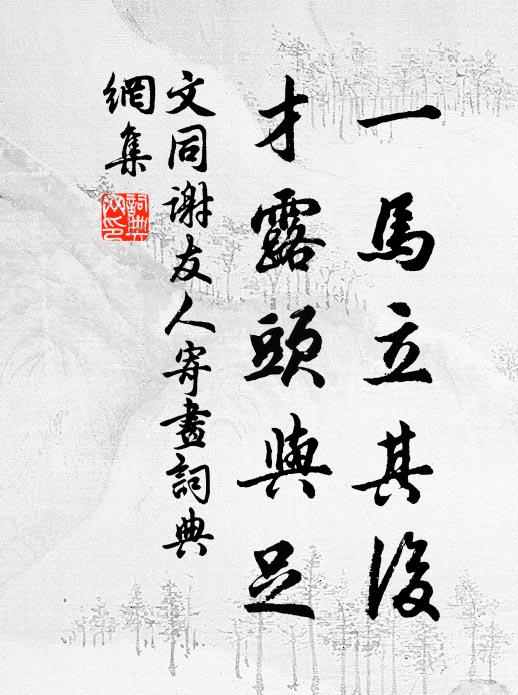 一馬立其後
才露頭與足
文同謝友人寄畫詞典
網集
詞典
网印